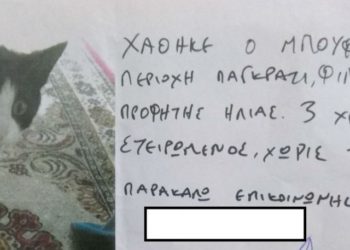 ΧΑΘΗΚΕ Ο ΜΠΟΥΦ
ΠΕΡΙΟΧΗ ΠΑΓΚΡΑΤΙ, ΦΙΛ
ΠΡΟΦΗΤΗΣ ΗΛΙΑΣ. 3 Χ
ΣΤΕΙΡΩΜΕΝΟΣ, ΧΩΡΙΣ
ΠΑΡΑΚΑΛΩ ΕΠΙΚΟΙΝΩΝΗΣ